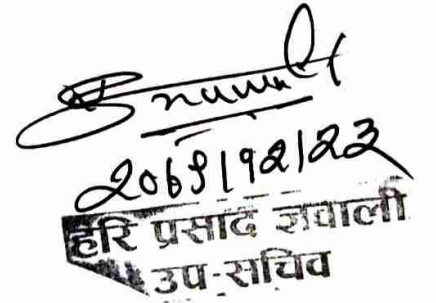 २०६९।१२।२३
हरि प्रसाद ज्ञवाली
उप-सचिव